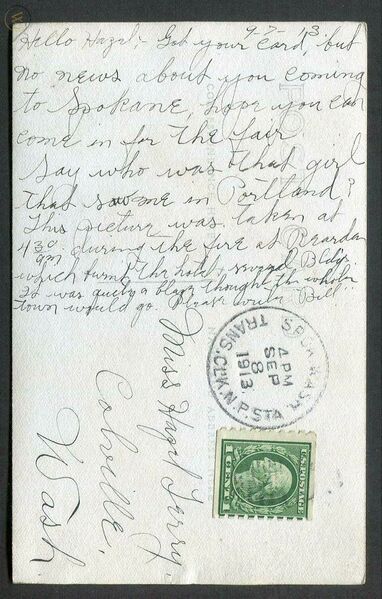 9-7-13
Hello Hazel;- Got your card, but
no news about you coming
to Spokane, hope you can
come in for the fair
Say who was that girl
that saw me in Portland?
This picture was taken at
4 30 am during the fire at Reardan
which burned the hotel & several Bldgs.
It was quite a blaze thought the whole
town would go. Please write Bill.
Miss Hazel Terry.
Colville,
Wash.
SPOK. WASH.
4 PM
SEP
8
1913
TRANS. CLK. N.P. STA.
U.S. POSTAGE
1 CENT 1